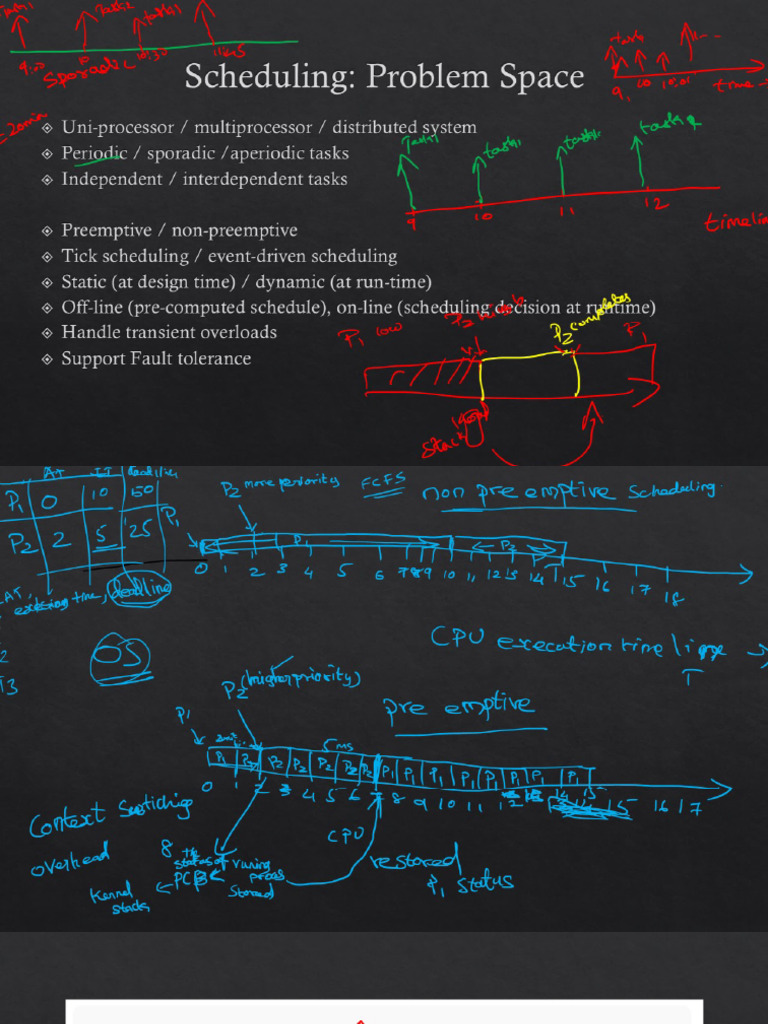 task2
task1
9:00
10
10:30
11:15
Sporadic
Scheduling: Problem Space
task
9,
10
10:05
time
20min
❖ Uni-processor / multiprocessor / distributed system
❖ Periodic / sporadic /aperiodic tasks
❖ Independent / interdependent tasks
Task1
task1
task1
9
10
11
12
timelin
❖ Preemptive / non-preemptive
❖ Tick scheduling / event-driven scheduling
❖ Static (at design time) / dynamic (at run-time)
❖ Off-line (pre-computed schedule), on-line (scheduling decision at runtime)
❖ Handle transient overloads
❖ Support Fault tolerance
P1 low
P2
P2 completes
P1
stack
AT
deadline
P1 0 10 50
P2 2 5 25
P2 more periority
FCFS
non preemptive Scheduling.
P1
P1
P2
0 1 2 3 4 5 6 7 8 9 10 11 12 13 14 15 16 17 18
AT, time, deadline
OS
CPU execution time line
T
P2 (higher priority)
pre emptive
P1
5 ms
P1 P1 P2 P2 P2 P2 P2 P1 P1 P1 P1 P1 P1 P1 P1
0 1 2 3 4 5 6 7 8 9 10 11 12 13 14 15 16 17
Context Switching
overhead
CPU
8 the
status of runing
PCB proces
Stored
Kernel
stack
restored
P1 status